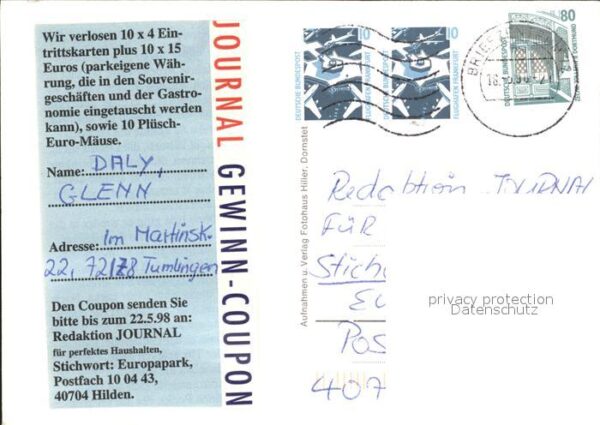 Wir verlosen 10 x 4 Ein-
trittskarten plus 10 x 15
Euros (parkeigene Wäh-
rung, die in den Souvenir-
geschäften und der Gastro-
nomie eingetauscht werden
kann), sowie 10 Plüsch-
Euro-Mäuse.
Name: DALY,
GLENN
Adresse: Im Martinsk.
22, 72178 Tumlingen
Den Coupon senden Sie
bitte bis zum 22.5.98 an:
Redaktion JOURNAL
für perfektes Haushalten,
Stichwort: Europapark,
Postfach 10 04 43,
40704 Hilden.
JOURNAL GEWINN-COUPON
Aufnahmen u. Verlag Fotohaus Hiller, Dornstet
10
DEUTSCHE BUNDESPOST
FLUGHAFEN FRANKFURT
10
DEUTSCHE BUNDESPOST
FLUGHAFEN FRANKFURT
80
DEUTSCHE BUNDESPOST
Redaktion
FÜR
Stich
EU
POS
407
privacy protection
Datenschutz